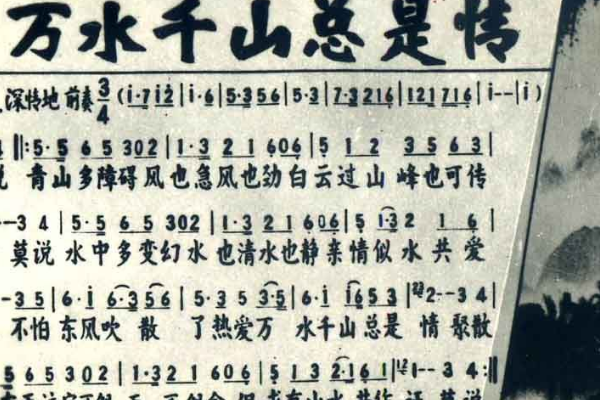 万水千山总是情
深情地 前奏 3/4 (i·7 i2|i·6|5·3 5 6|5·3|7·3 2 1 6|1 2 1 7 1 6|i--|i)
‖:5·5 6 5 302|1·3 2 1 606|5 1 2 3 5 6 3|
说 青山多障碍风也急风也劲白云过山峰也可传
--3 4|5·5 6 5 302|1·3 2 1 606|5 1·3 2 1 6|
莫说水中多变幻水也清水也静亲情似水共爱
-3 5|6·i 6·3 5 6|5·3 5 3·5|6·i i 6 5 3|2--3 4|
不怕东风吹散了热爱万水千山总是情聚散
5 6 5 302|1·3 2 1 606|5 1 3 2·1 6 1|1--3 4:‖